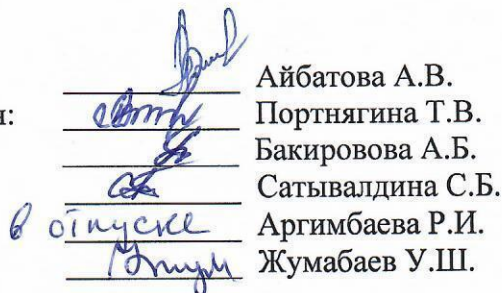 Айбатова А.В.
я: Портнягина Т.В.
Бакировова А.Б.
Сатывалдина С.Б.
в отпуске Аргимбаева Р.И.
Жумабаев У.Ш.